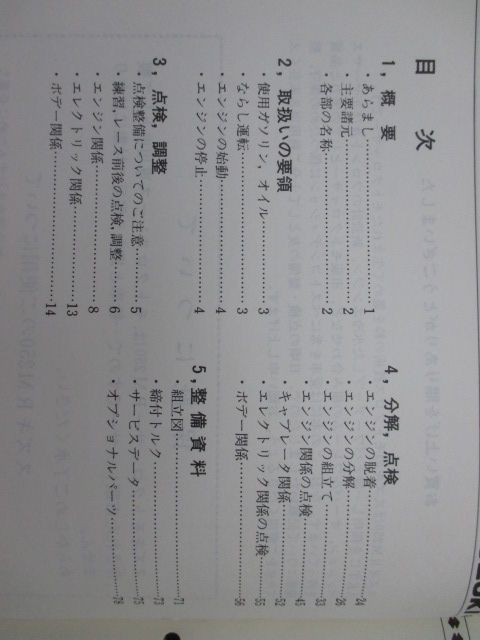 目次
1，概要
・あらまし……………………1
・主要諸元……………………2
・各部の名称…………………2
2，取扱いの要領
・使用ガソリン，オイル………3
・ならし運転…………………3
・エンジンの始動……………4
・エンジンの停止……………4
3，点検，調整
・点検整備についてのご注意……5
・練習，レース前後の点検，調整……6
・エンジン関係………………8
・エレクトリック関係…………13
・ボデー関係…………………14
4，分解，点検
・エンジンの脱着……………24
・エンジンの分解……………26
・エンジンの組立て…………33
・エンジン関係の点検………45
・キャブレータ関係…………52
・エレクトリック関係の点検……55
・ボデー関係…………………56
5，整備資料
・組立図………………………71
・締付トルク…………………73
・サービスデータ……………75
・オプショナルパーツ………78